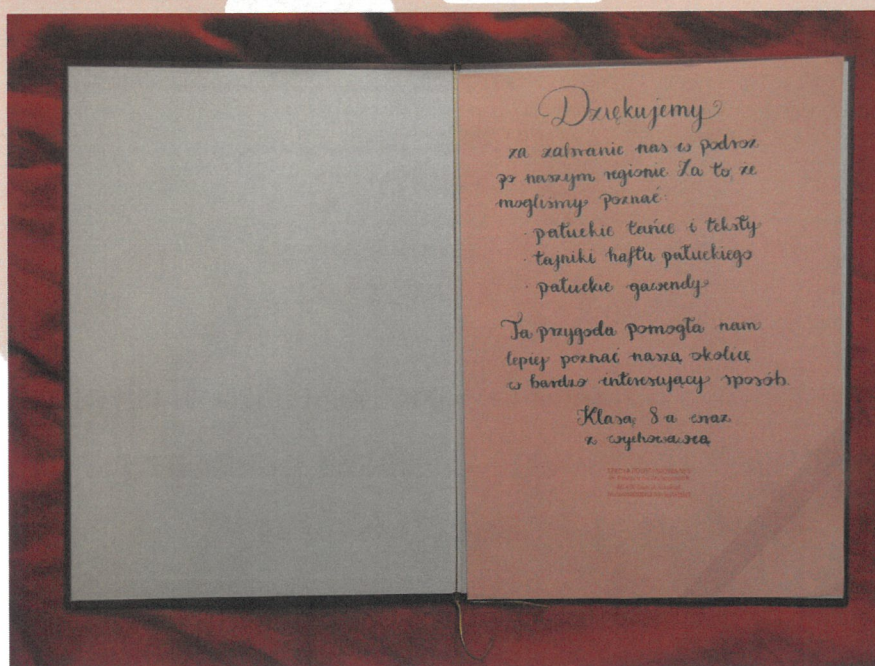 Dziękujemy
za zabranie nas w podróż
po naszym regionie Za to, że
mogliśmy poznać:
· pałuckie tańce i teksty
· tajniki haftu pałuckiego
· pałuckie gawendy
Ta przygoda pomogła nam
lepiej poznać naszą okolicę
w bardzo interesujący sposób
Klasa 8a wraz
z wychowawcą